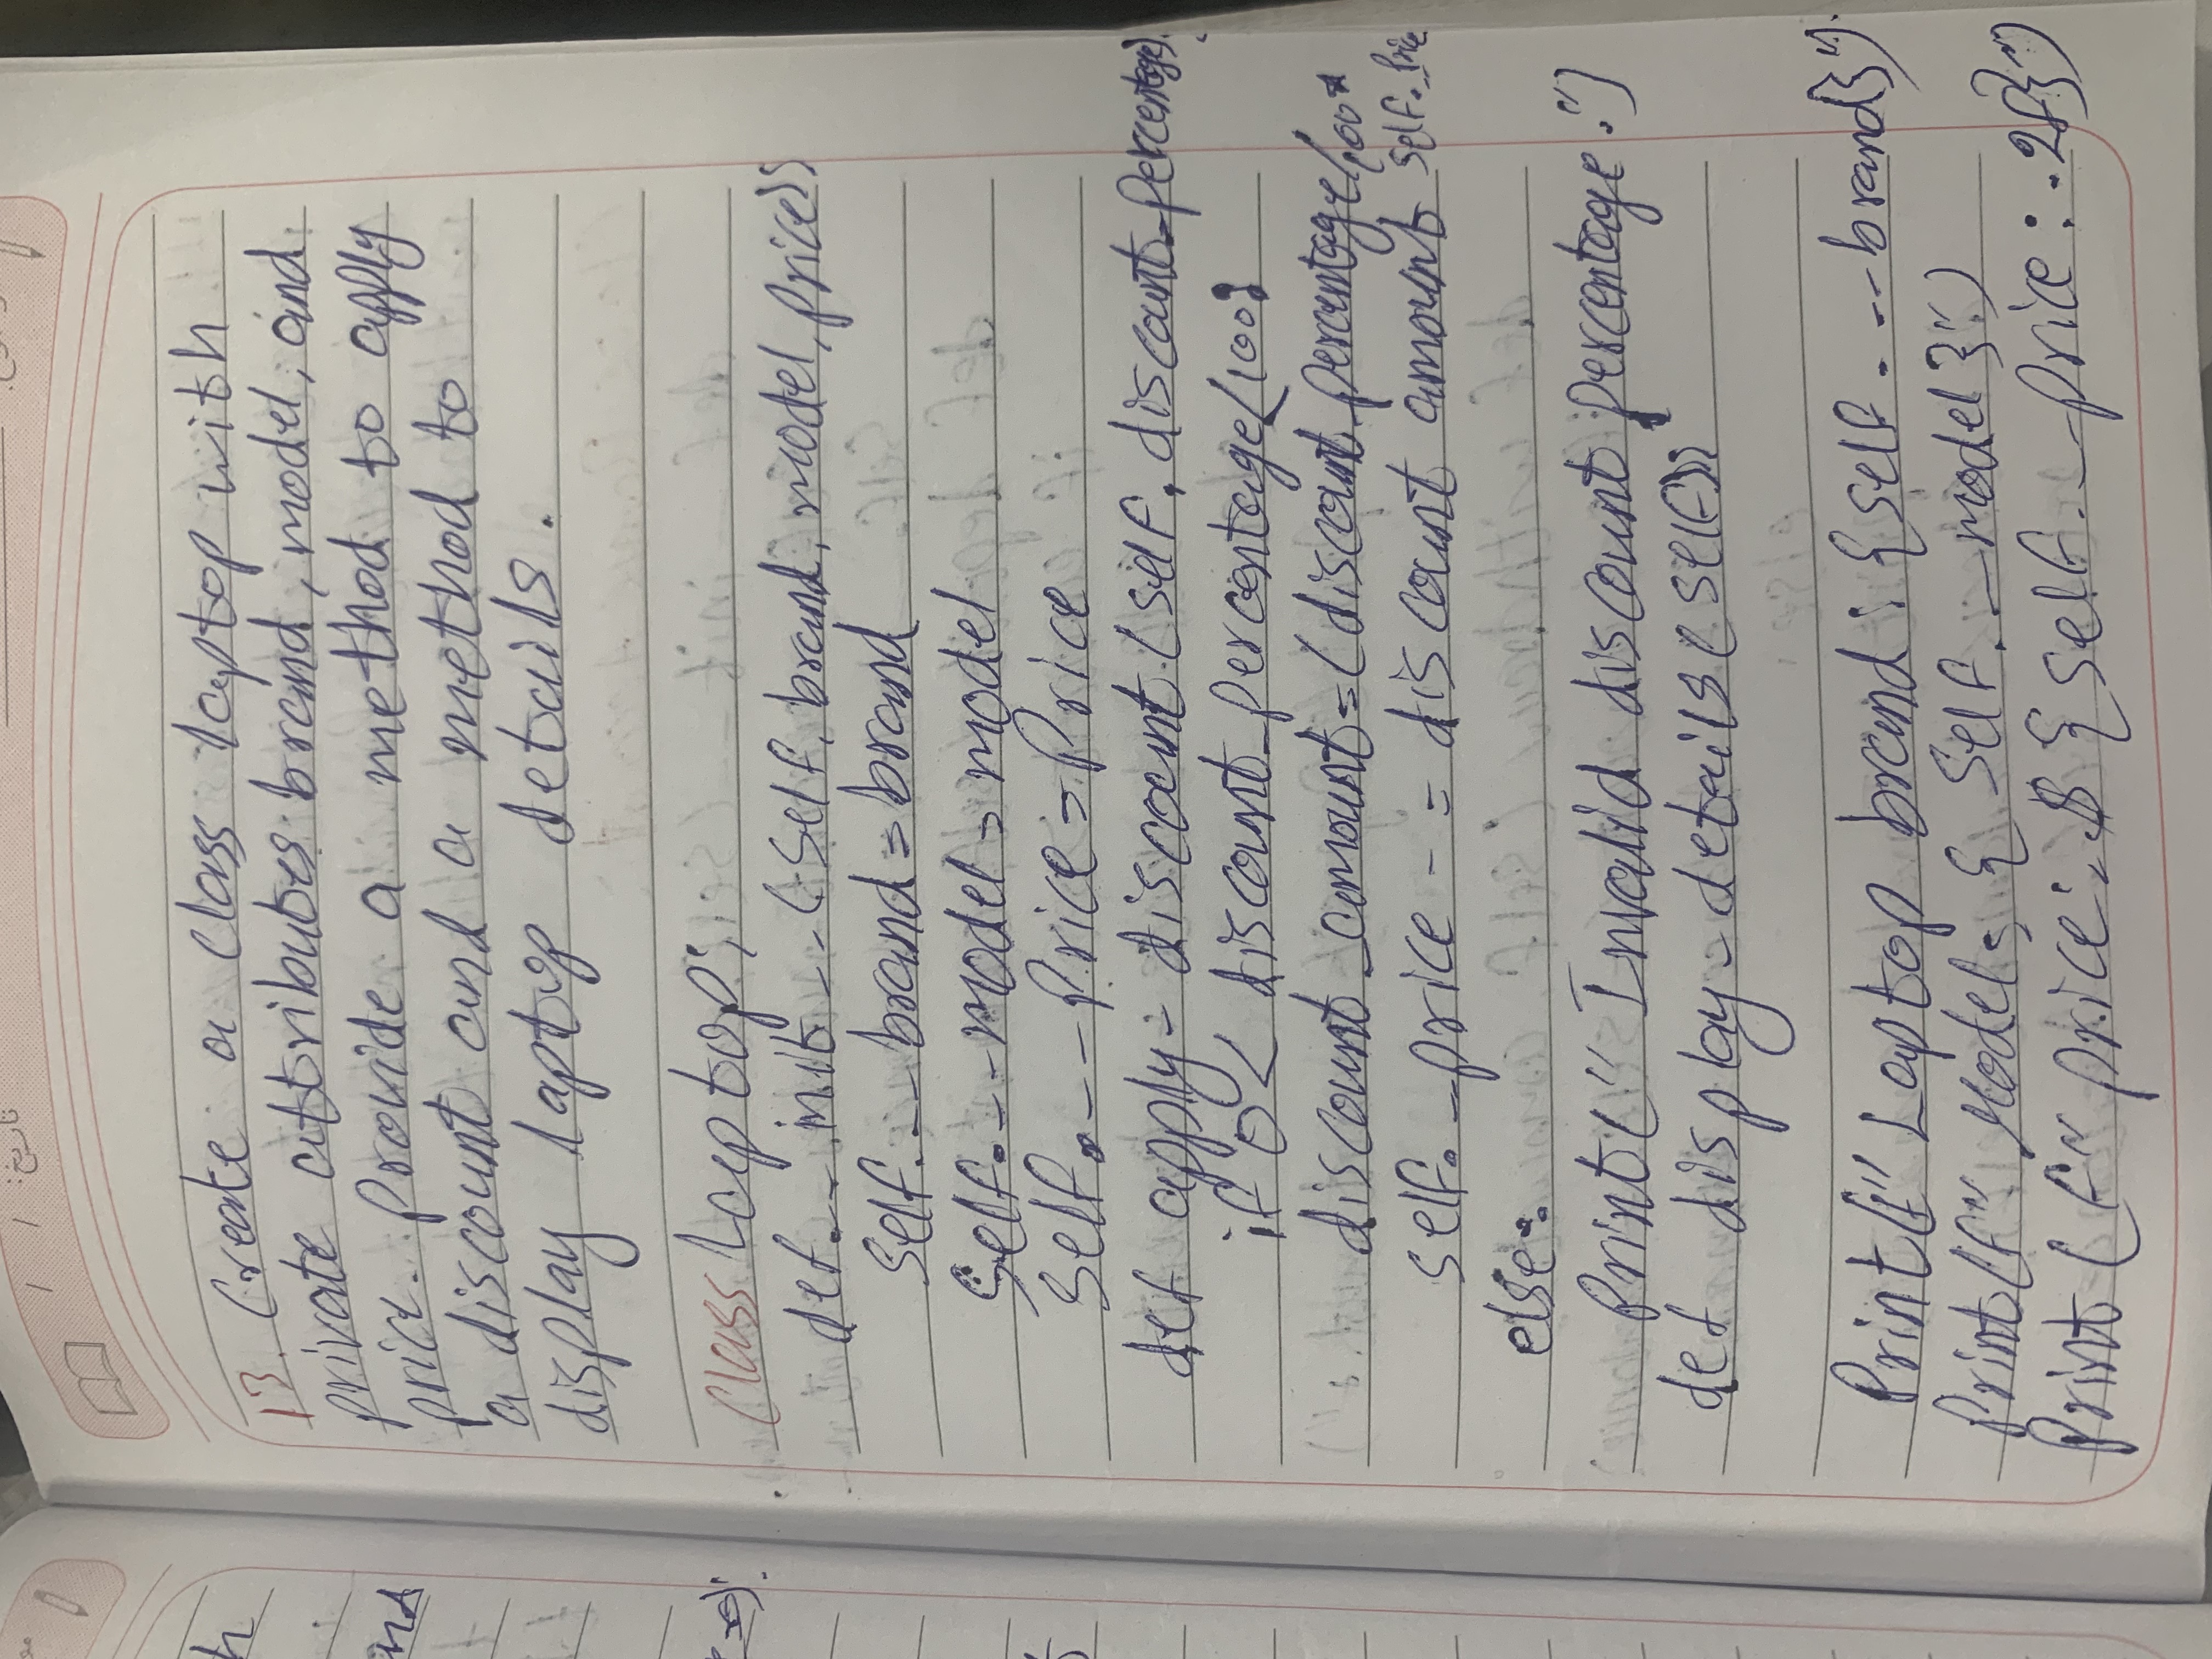 تاریخ: / /
13. Create a class laptop with
private attributes brand, model, and
price. Provide a method to apply
a discount and a method to
display laptop details.
class Laptop:
def __init__(self, brand, model, price):
self.__brand = brand
self.__model = model
self.__Price = Price
def apply_discount (self, discount_percentage):
if 0 < discount_percentage < 100:
discount_amount = (discount_percentage/100*
self._price
self._price -= discount amount
else:
Print(" Invalid discount percentage.")
def display_details (self):
Print(f" Laptop brand: {self.__brand}")
Print(f" Model: { Self.__model }")
Print (f" price: $ {self.__price: .2f}")